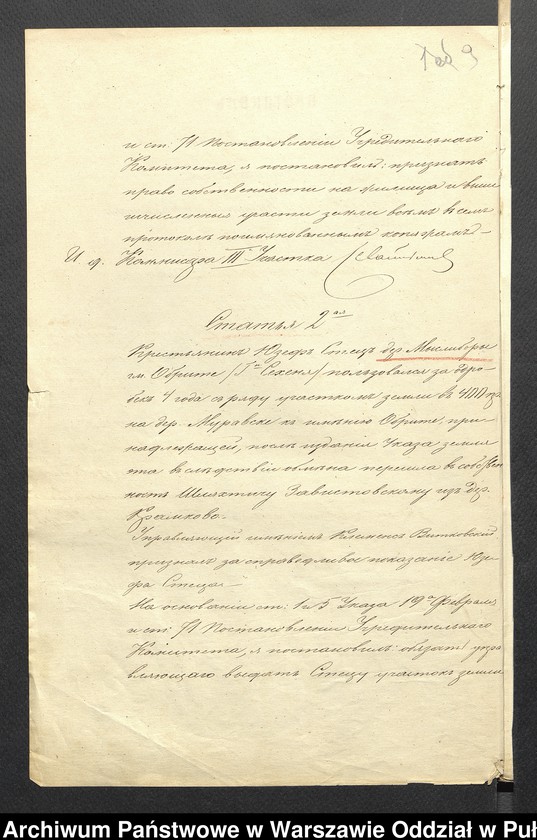 и ст: 71 Постановленій Учредительнаго
Комитета, я постановилъ: признать
право собственности на жилища и выше
исчисленныя участки земли всѣмъ въ семъ
протоколѣ поименованнымъ
И. д. Коммисара III Участка
Статья 2ая
Крестьянинъ Юзефъ Стецъ дер. Мысливоры
гм. Обрите пользовался за
4 года сряду участкомъ земли въ 400
на дер. Муравске къ имѣнію Обрите, при-
надлежащей, послѣ изданія Указа земля
та въ слѣдствіи обмѣна перешла въ собствен
ность Шляхтичу Завистовскому изъ дер.
Крамково.
Управляющій имѣніемъ Клеменсъ Витковскій
призналъ за справедливое показаніе Юзе-
фа Стеца.
На основаніи ст: 1 и 5 Указа 19го Февраля
и ст: 71 Постановленій Учредительнаго
Комитета, я постановилъ: обязать упра
вляющаго выдать Стецу участокъ земли
Archiwum Państwowe w Warszawie Oddział w Puł